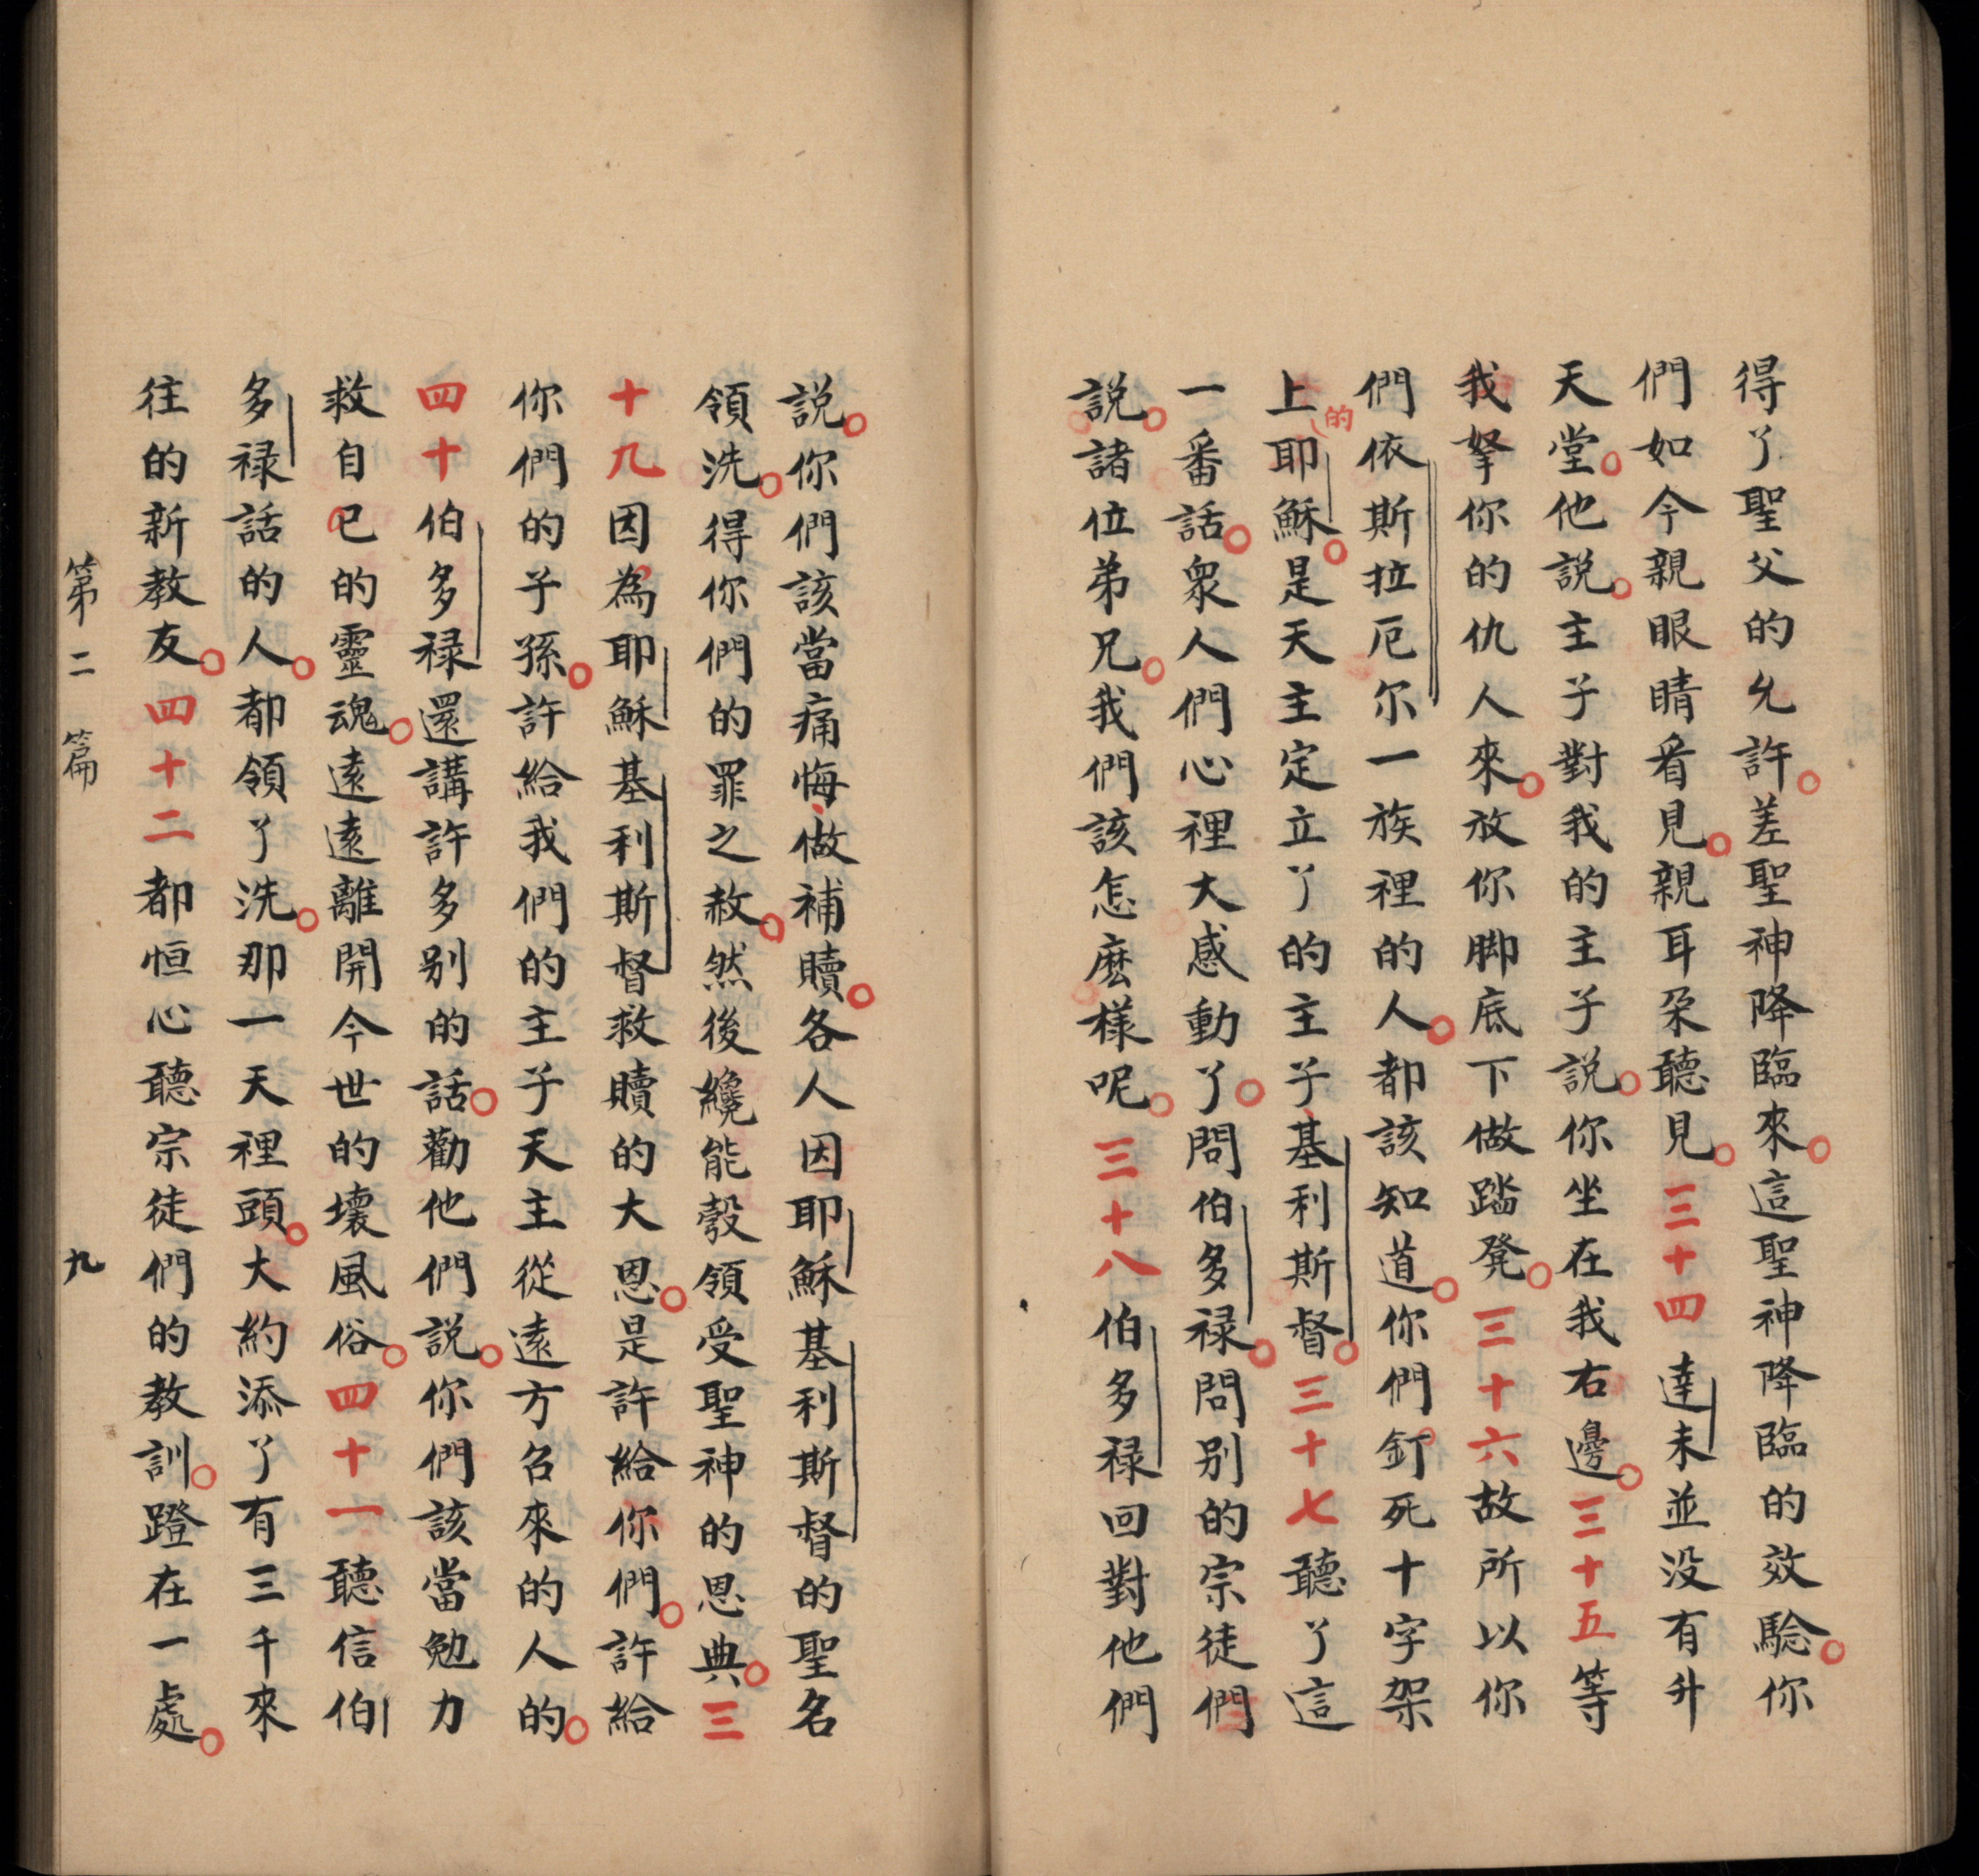 得了聖父的允許。差聖神降臨來。這聖神降臨的效騐。你
們如今親眼睛看見。親耳朶聽見。三十四達未並没有升
天堂。他説。主子對我的主子説。你坐在我右邊。三十五等
我拏你的仇人來。放你脚底下做踏凳。三十六故所以你
們依斯拉厄尔一族裡的人。都該知道。你們釘死十字架
上的耶穌。是天主定立了的主子基利斯督。三十七聽了這
一番話。衆人們心裡大感動了。問伯多禄。問别的宗徒們
説。諸位弟兄。我們該怎麽樣呢。三十八伯多禄回對他們
説。你們該當痛悔、做補贖。各人因耶穌基利斯督的聖名
領洗。得你們的罪之赦。然後纔能彀領受聖神的恩典。三
十九因為耶穌基利斯督救贖的大恩。是許給你們。許給
你們的子孫。許給我們的主子天主從遠方名來的人的。
四十伯多禄還講許多别的話。勸他們説。你們該當勉力
救自已的靈魂。遠遠離開今世的壞風俗。四十一聽信伯
多禄話的人。都領了洗。那一天裡頭。大約添了有三千來
往的新教友。四十二都恒心聽宗徒們的教訓。蹬在一處。
第二篇 九